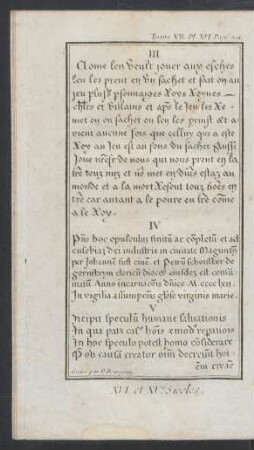 Tome VII. Pl. XII. Page 204
III
Come len Veult Jouer aux esches
len les prent en Vng sachet et fait on au
jeu plus psonnaiges Roys Roynes
chlrs et villains et aps le Jeu les Re
met on en sachet ou lon les print et a
vient aucune fois que celluy qui a este
Roy au Jeu est au fons du sachet Aussi
Joue nre sr de nous qui nous prent en la
tre tous nuz et no met en diuers estaz au
monde et a la mort Resout tous hoes en
tre car autant a le poure en tre come
a le Roy.
IV
Pns hoc opusculum finitu ac completu et ad
eusebiaz dei industrie in ciuitate Maguntin
per Johannem fust ciuem et Petru schoiffher de
gernsheym clericu dioces eiusdez est consu
matum Anno incarnacionis dnice M. cccc lxii.
In vigilia assumpcois gliose virginis marie.
V
Incipit speculu humane saluationis
In qua patz casz hois et modz repatiois
In hoc speculo potest homo considerare
Q ob causa creator oim decreuit hoi-
em creare
Gravé par P.
XVI. et XVe. Siecles.